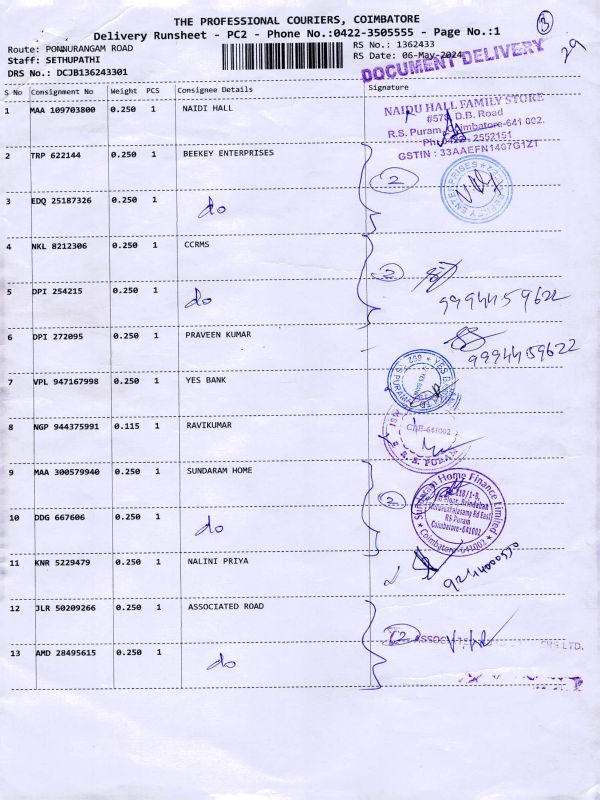 THE PROFESSIONAL COURIERS, COIMBATORE
Delivery Runsheet - PC2 - Phone No.:0422-3505555 - Page No.:1
3
29
Route: PONNURANGAM ROAD
Staff: SETHUPATHI
DRS No.: DCJB136243301
RS No.: 1362433
RS Date: 06-May-2024
DOCUMENT DELIVERY
S No Consignment No Weight PCS Consignee Details Signature
1 MAA 109703800 0.250 1 NAIDI HALL
NAIDU HALL FAMILY STORE
#578, D.B. Road
R.S. Puram, Coimbatore-641 002.
Ph: 0422 - 2552151
GSTIN : 33AAEFN1407G1Z1
2 TRP 622144 0.250 1 BEEKEY ENTERPRISES
2
3 EDQ 25187326 0.250 1 do
4 NKL 8212306 0.250 1 CCRMS
2
5 DPI 254215 0.250 1 do
9994459622
6 DPI 272095 0.250 1 PRAVEEN KUMAR
9994459622
7 VPL 947167998 0.250 1 YES BANK
YES BANK
8 NGP 944375991 0.115 1 RAVIKUMAR
CBE-641002
R. S. PURAM
9 MAA 300579940 0.250 1 SUNDARAM HOME
2
Sundaram Home Finance Limited
RS Puram
Coimbatore-641002
Coimbatore-641002
10 DDG 667606 0.250 1 do
11 KNR 5229479 0.250 1 NALINI PRIYA
12 JLR 50209266 0.250 1 ASSOCIATED ROAD
2
13 AMD 28495615 0.250 1 do